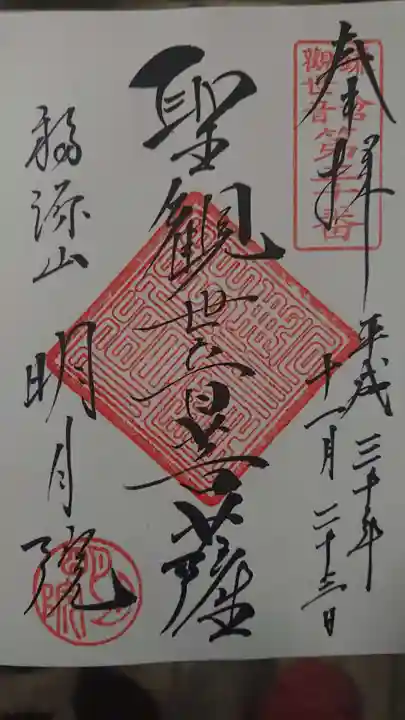 奉拝
平成三十年
十一月二十三日
聖観世音菩薩
福源山
明月院
鎌倉
観世音第三十番